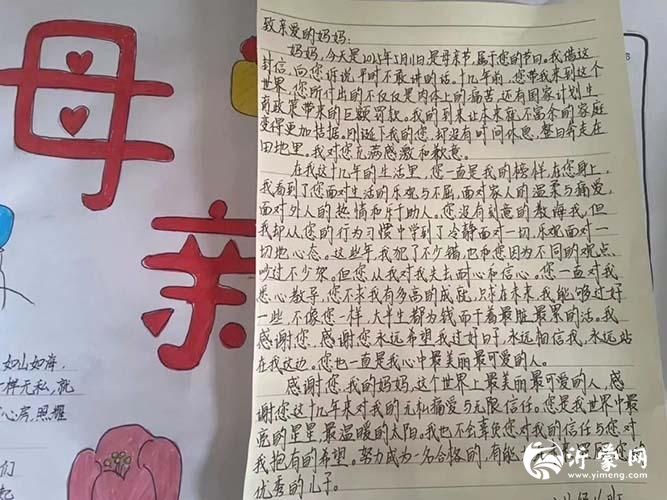 母亲
如山如海,
样无私,就
心房,照耀
们
致亲爱的妈妈:
妈妈,今天是2025年5月11日是母亲节,属于您的节日。我借这
封信,向您诉说平时不敢讲的话。十几年前,您带我来到这个
世界,您所付出的不仅仅是肉体上的痛苦,还有国家计划生
育政策带来的巨额罚款。我的到来让本来就不富余的家庭
变得更加拮据。刚诞下我的您,却没有时间休息,整日奔走在
田地里。我对您充满感激和歉意。
在我这十几年的生活里,您一直是我的榜样,在您身上,
我看到了您面对生活的乐观与不屈,面对家人的温柔与痛爱,
面对外人的热情和乐于助人。您没有刻意的教诲我,但
我却从您的行为习惯中学到了冷静面对一切,乐观面对一
切地心态。这些年我犯了不少错,也和您因为不同的观点
吵过不少架。但您从我对我失去耐心和信心。您一直对我
悉心教导,您不求我有多高的成就,只求在未来,我能够过好
一些,不像您一样,大半生都为钱而干着最脏最累的活。我
感谢您,感谢您永远希望我过好日子,永远相信我,永远站
在我这边。您也一直是我心中最美丽最可爱的人。
感谢您,我的妈妈,这个世界上最美丽最可爱的人,感
谢您这十几年来对我的无私痛爱与无限信任。您是我世界中最
亮的星星,最温暖的太阳。我也不会辜负您对我的信任与您对
我抱有的希望。努力成为一名合格的,有能
优秀的儿子。
沂蒙网
www.yimeng.com